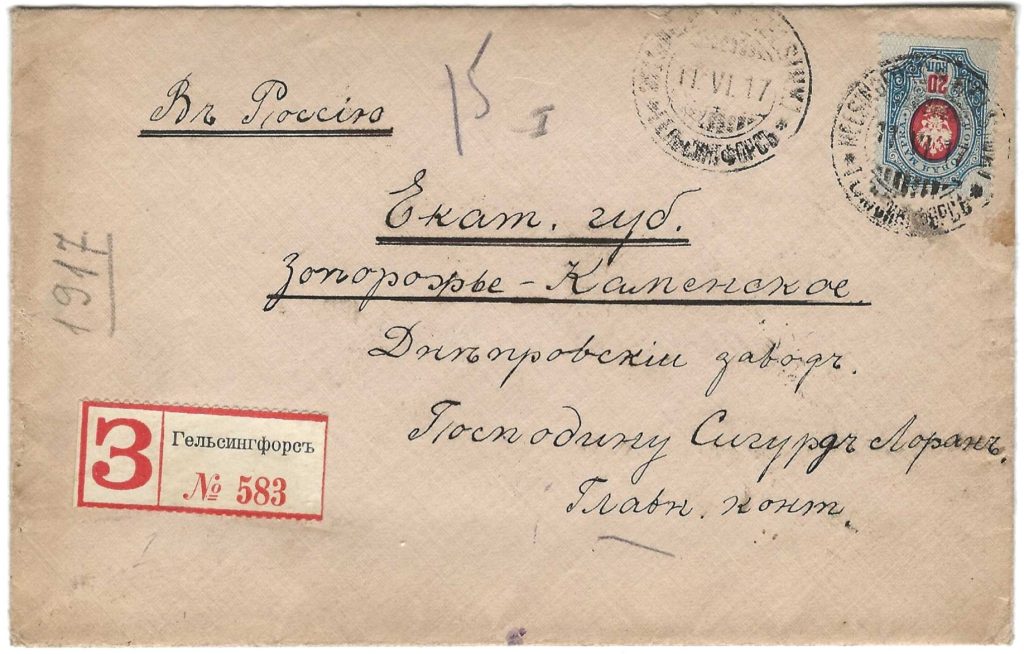 Въ Россію
15
I
HELSINKI
11.VI.17
ГЕЛЬСИНГФОРСЪ
20 коп
Екат. губ.
Запорожье - Каменское.
Днѣпровскій заводъ.
Господину Сигурдъ Лоранъ.
Главн. конт.
1917
З
Гельсингфорсъ
№ 583